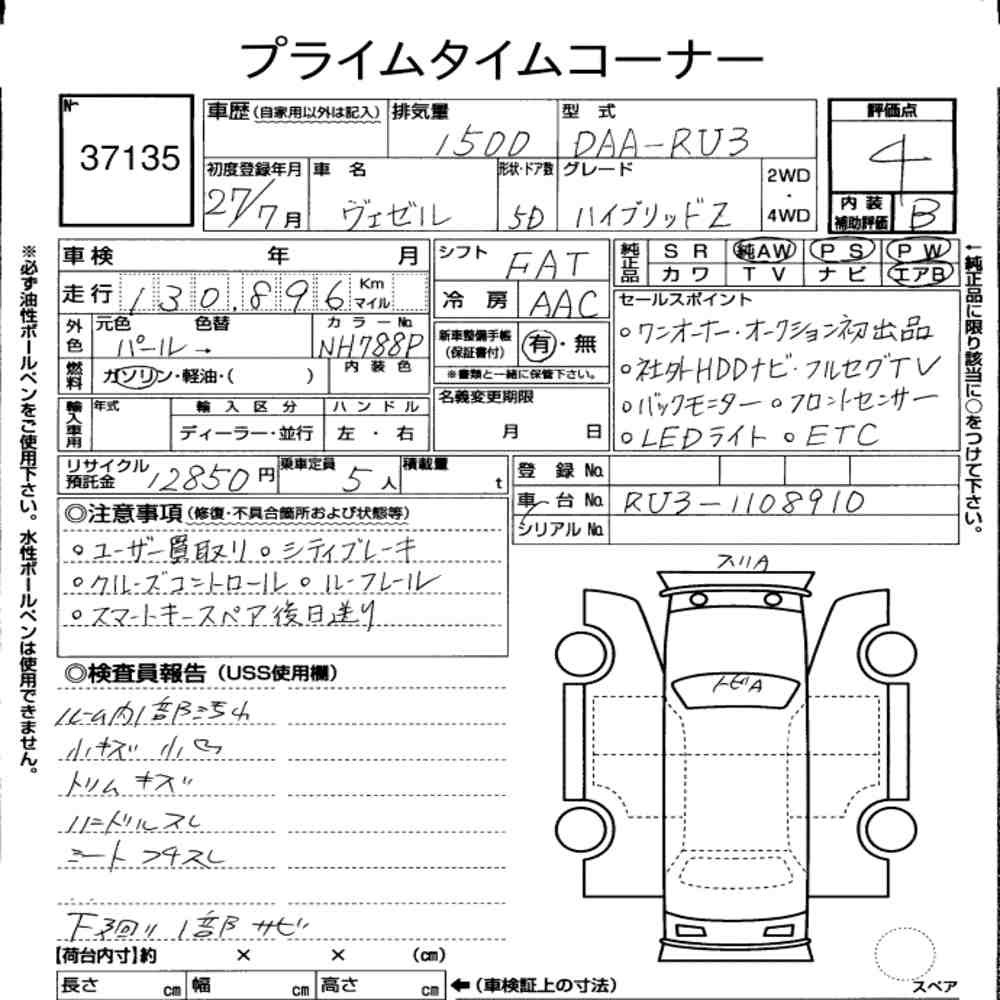 プライムタイムコーナー
№
37135
車歴(自家用以外は記入) 排気量 型式 評価点
1500 DAA-RU3 4
初度登録年月 車名 形状・ドア数 グレード 2WD・4WD
27/7月 ヴェゼル 5D ハイブリッドZ
内装補助評価 B
車検 年 月 シフト FAT 純正品 SR 純AW PS PW
走行 130,896 Km マイル 冷房 AAC カワ TV ナビ エアB
外色 元色 色替 カラーNo.
パール→ NH788P
新車整備手帳(保証書付) 有・無
※書類と一緒に保管下さい。
燃料 ガソリン・軽油・( ) 内装色
名義変更期限
月 日
輸入車用 年式 輸入区分 ハンドル
ディーラー・並行 左・右
セールスポイント
○ワンオーナー・オークション初出品
○社外HDDナビ・フルセグTV
○バックモニター ○フロントセンサー
○LEDライト ○ETC
リサイクル預託金 12850円 乗車定員 5人 積載量 t
登録No.
車台No. RU3-1108910
シリアルNo.
◎注意事項(修復・不具合箇所および状態等)
○ユーザー買取り ○シティブレーキ
○クルーズコントロール ○ルーフレール
○スマートキースペア後日送り
◎検査員報告(USS使用欄)
ルーム内1部汚れ
小キズ 小凹
トリム キズ
ハンドルスレ
シート コゲスレ
下廻り 1部サビ
スリA
トビA
【荷台内寸】約 × × (cm)
長さ cm 幅 cm 高さ cm ←(車検証上の寸法)
スペア
※必ず油性ボールペンをご使用下さい。水性ボールペンは使用できません。
←純正品に限り該当に○をつけて下さい。